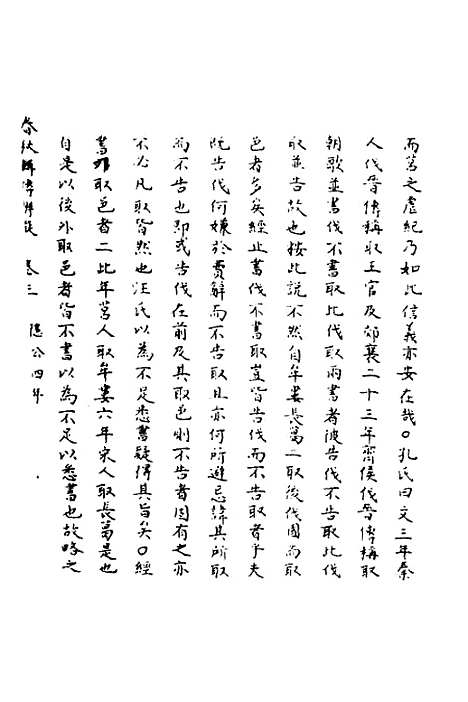 而莒之虐紀乃如此信義亦安在哉○孔氏曰文三年秦
人伐晉傳稱取王官及郊襄二十三年齊侯伐晉傳稱取
朝歌並書伐不書取此伐取兩書者彼告伐不告取此伐
取並告故也按此說不然自牟婁長葛二取後伐國而取
邑者多矣經止書伐不書取豈皆告伐而不告取者乎夫
既告伐何嫌於費辭而不告取且亦何所避忌諱其所取
而不告也即或告伐在前及其取邑則不告者固有之亦
不必凡取皆然也汪氏以為不足悉書疑得其旨矣○經
書外取邑者二比年莒人取牟婁六年宋人取長葛是也
自是以後外取邑者皆不書以為不足以悉書也故略之
春秋 卷三 隱公四年